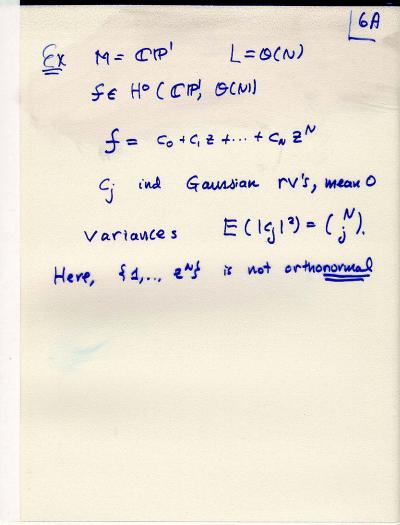 6A
Ex M = ℂP¹ L = O(N)
f ∈ H⁰(ℂP¹, O(N))
f = c₀ + c₁ z + ... + c_N z^N
c_j ind Gaussian rv's, mean 0
variances E(|c_j|²) = (N j).
Here, {1, .., z^N} is not orthonormal